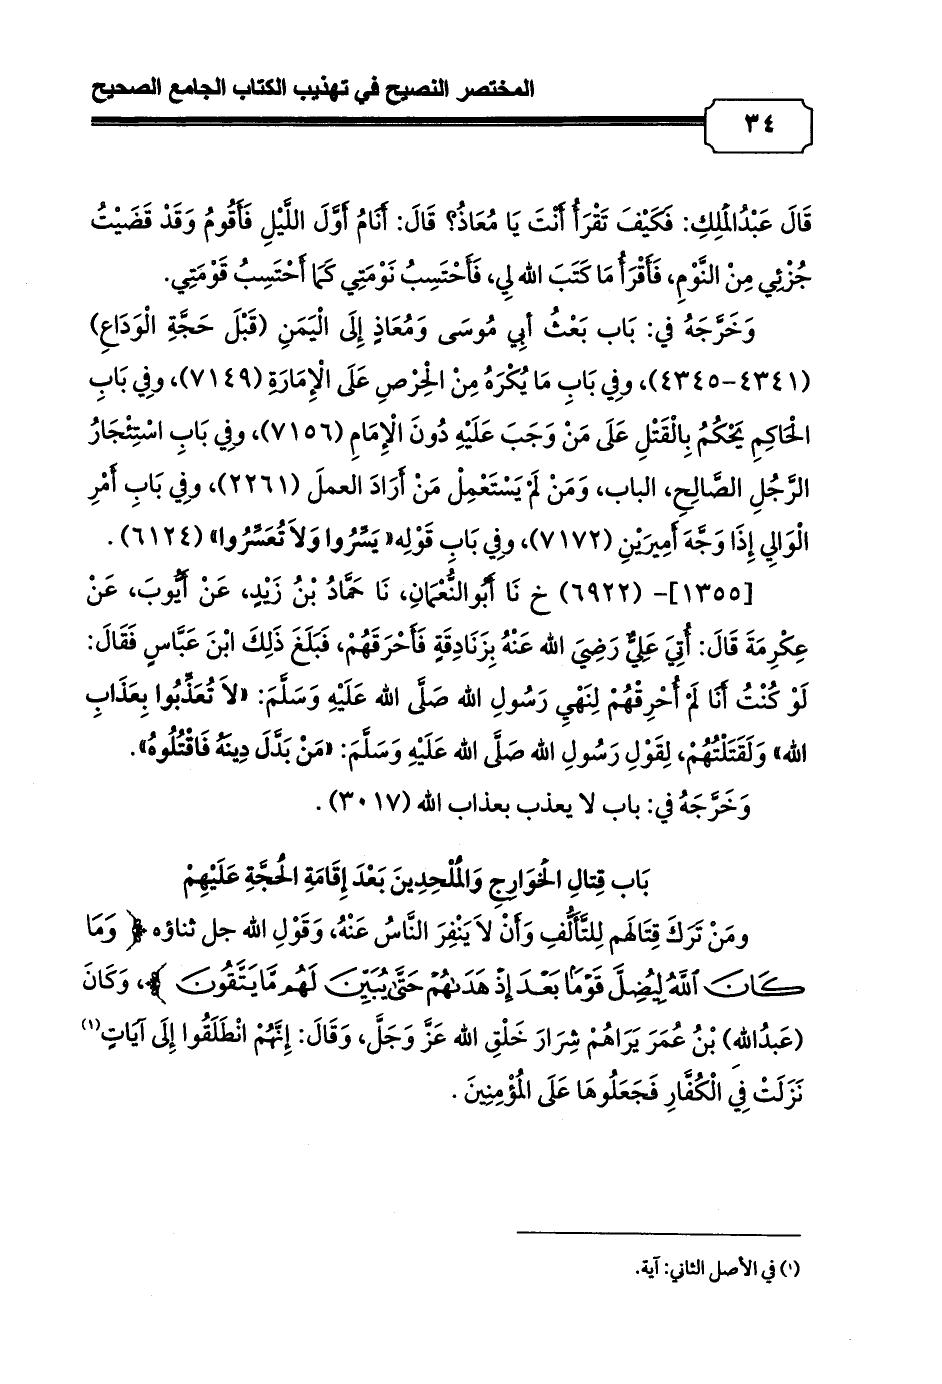 المختصر النصيح في تهذيب الكتاب الجامع الصحيح
٣٤
قَالَ عَبْدُالْمَلِكِ: فَكَيْفَ تَقْرَأُ أَنْتَ يَا مُعَاذُ؟ قَالَ: أَنَامُ أَوَّلَ اللَّيْلِ فَأَقُومُ وَقَدْ قَضَيْتُ
جُزْئِي مِنْ النَّوْمِ، فَأَقْرَأُ مَا كَتَبَ الله لِي، فَأَحْتَسِبُ نَوْمَتِي كَمَا أَحْتَسِبُ قَوْمَتِي.
وَخَرَّجَهُ في: بَاب بَعْثُ أبِي مُوسَى وَمُعَاذٍ إِلَى الْيَمَنِ (قَبْلَ حَجَّةِ الْوَدَاعِ)
(٤٣٤١-٤٣٤٥)، وفِي بَابِ مَا يُكْرَهُ مِنْ الْحِرْصِ عَلَى الْإِمَارَةِ (٧١٤٩)، وفِي بَابِ
الْحَاكِمِ يَحْكُمُ بِالْقَتْلِ عَلَى مَنْ وَجَبَ عَلَيْهِ دُونَ الْإِمَامِ (٧١٥٦)، وفِي بَابِ اسْتِئْجَارُ
الرَّجُلِ الصَّالِحِ، الباب، وَمَنْ لَمْ يَسْتَعْمِلْ مَنْ أَرَادَ العملَ (٢٢٦١)، وفِي بَابِ أَمْرِ
الْوَالِي إِذَا وَجَّهَ أَمِيرَيْنِ (٧١٧٢)، وفِي بَابِ قَوْلِه« يَسِّرُوا وَلاَ تُعَسِّرُوا» (٦١٢٤) .
[١٣٥٥]- (٦٩٢٢) خ نَا أَبُوالنُّعْمَانِ، نَا حَمَّادُ بْنُ زَيْدٍ، عَنْ أَيُّوبَ، عَنْ
عِكْرِمَةَ قَالَ: أُتِيَ عَلِيٌّ رَضِيَ الله عَنْهُ بِزَنَادِقَةٍ فَأَحْرَقَهُمْ، فَبَلَغَ ذَلِكَ ابْنَ عَبَّاسٍ فَقَالَ:
لَوْ كُنْتُ أَنَا لَمْ أُحْرِقْهُمْ لِنَهْيِ رَسُولِ الله صَلَّى الله عَلَيْهِ وَسَلَّمَ: «لاَ تُعَذِّبُوا بِعَذَابِ
الله» وَلَقَتَلْتُهُمْ، لِقَوْلِ رَسُولِ الله صَلَّى الله عَلَيْهِ وَسَلَّمَ: «مَنْ بَدَّلَ دِينَهُ فَاقْتُلُوهُ».
وَخَرَّجَهُ في: باب لا يعذب بعذاب الله (٣٠١٧) .
بَاب قِتالِ الْخوَارِجِ وَالْمُلْحِدِينَ بَعْدَ إِقَامَةِ الْحُجَّةِ عَلَيْهِمْ
ومَنْ تَرَكَ قِتَالَهم لِلتَّأَلُّفِ وَأَنْ لاَ يَنْفِرَ النَّاسُ عَنْهُ، وَقَوْلِ الله جل ثناؤه ﴿ وَمَا
كَانَ ٱللَّهُ لِيُضِلَّ قَوْمًا بَعْدَ إِذْ هَدَىٰهُمْ حَتَّىٰ يُبَيِّنَ لَهُم مَّا يَتَّقُونَ ﴾، وَكَانَ
(عَبدُالله) بْنُ عُمَرَ يَرَاهُمْ شِرَارَ خَلْقِ الله عَزَّ وَجَلَّ، وَقَالَ: إِنَّهُمْ انْطَلَقُوا إِلَى آيَاتٍ(١)
نَزَلَتْ فِي الْكُفَّارِ فَجَعَلُوهَا عَلَى الْمُؤْمِنِينَ .
(١) في الأصل الثاني: آية.